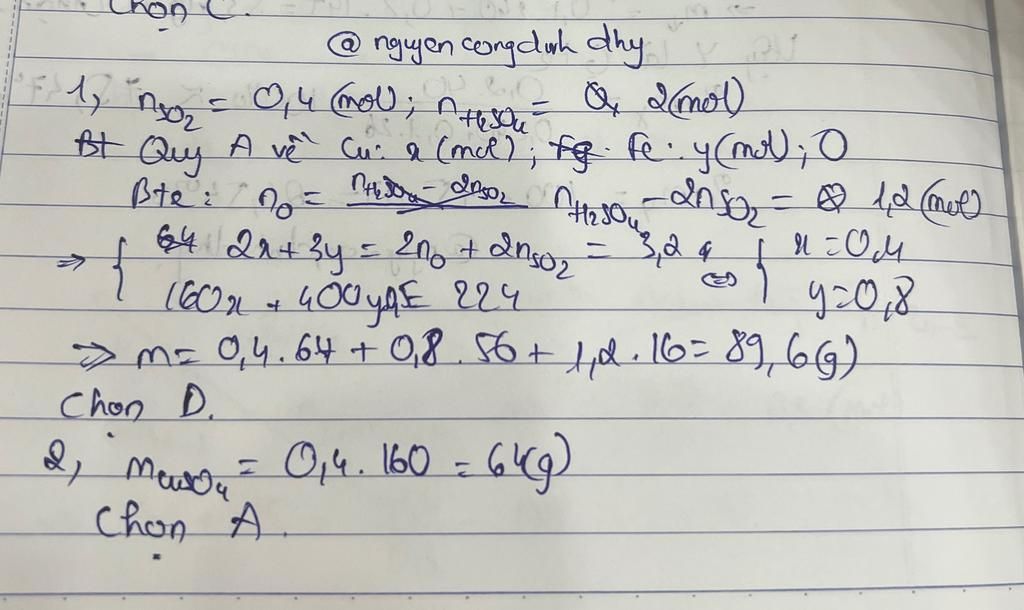 Chọn C.
@ nguyen congdinh dhy
1, nSO2 = 0,4 (mol); nH2SO4 = 2(mol)
Quy A về Cu: x (mol); Fe: y(mol); O
Bte: nO = nH2SO4 - 2nSO2 = 1,2 (mol)
=> { 2x + 3y = 2nO + 2nSO2 = 3,2 <=> { x = 0,4
160x + 400y = 224 y = 0,8
=> m = 0,4.64 + 0,8.56 + 1,2.16 = 89,6(g)
Chọn D.
2, mCuSO4 = 0,4.160 = 64(g)
Chọn A.